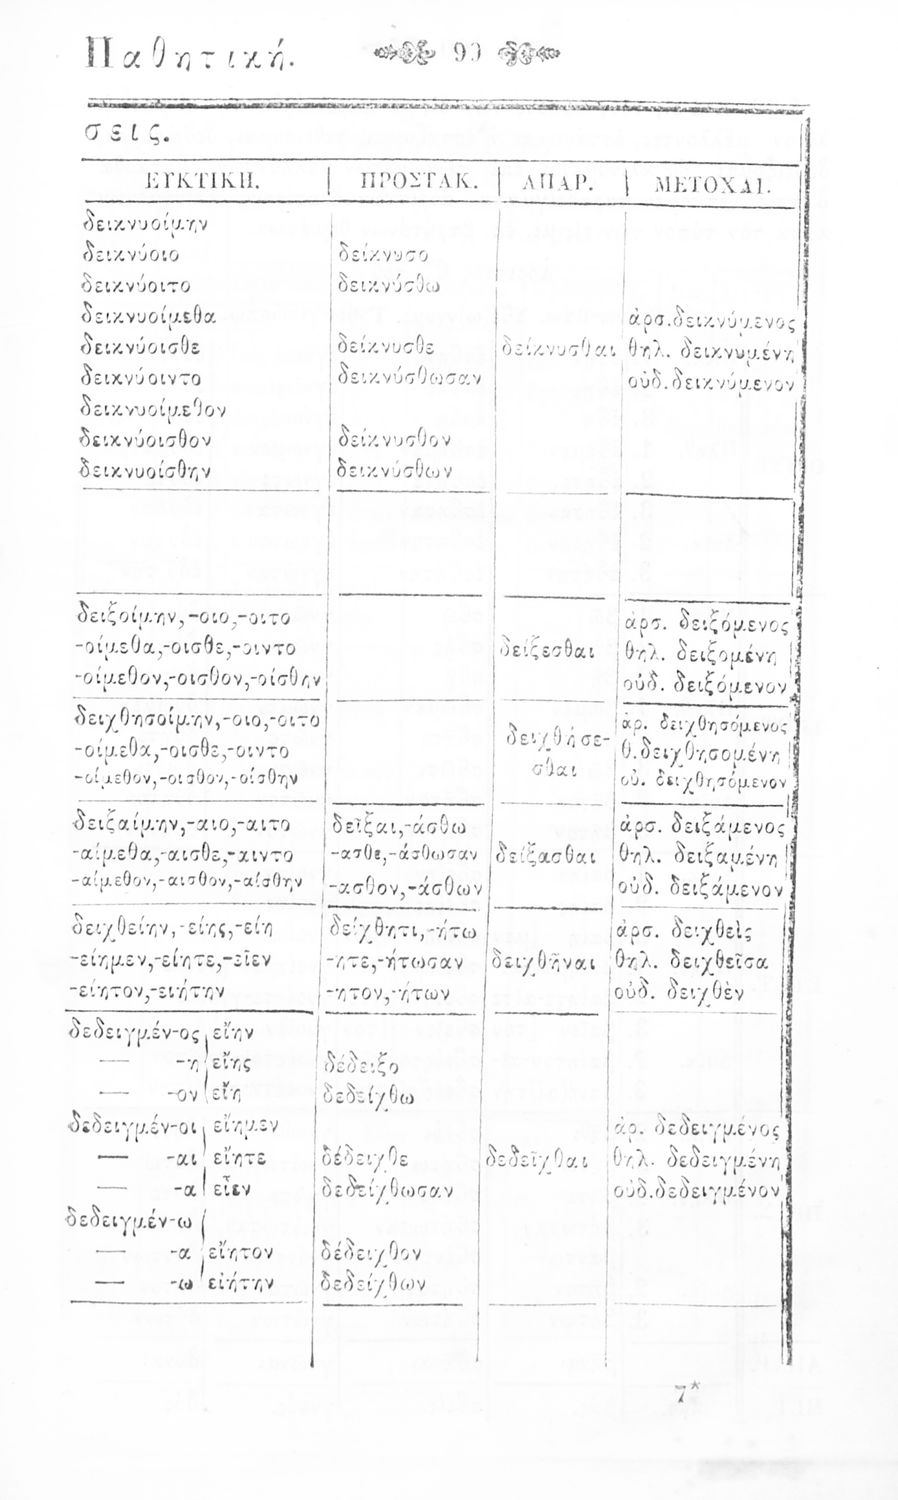 Παθητική. 99
σεις.
ΕΥΚΤΙΚΗ. | ΠΡΟΣΤΑΚ. | ΑΠΑΡ. | ΜΕΤΟΧΑΙ.
δεικνυοίμην
δεικνύοιο δείκνυσο
δεικνύοιτο δεικνύσθω
δεικνυοίμεθα ἀρσ. δεικνύμενος
δεικνύοισθε δείκνυσθε δείκνυσθαι θηλ. δεικνυμένη
δεικνύοιντο δεικνύσθωσαν οὐδ. δεικνύμενον
δεικνυοίμεθον
δεικνύοισθον δείκνυσθον
δεικνυοίσθην δεικνύσθων
δειξοίμην,-οιο,-οιτο ἀρσ. δειξόμενος
-οίμεθα,-οισθε,-οιντο δείξεσθαι θηλ. δειξομένη
-οίμεθον,-οισθον,-οίσθην οὐδ. δειξόμενον
δειχθησοίμην,-οιο,-οιτο ἀρ. δειχθησόμενος
-οίμεθα,-οισθε,-οιντο δειχθήσε- θ. δειχθησομένη
-οίμεθον,-οισθον,-οίσθην σθαι οὐ. δειχθησόμενον
δειξαίμην,-αιο,-αιτο δεῖξαι,-άσθω ἀρσ. δειξάμενος
-αίμεθα,-αισθε,-αιντο -ασθε,-άσθωσαν δείξασθαι θηλ. δειξαμένη
-αίμεθον,-αισθον,-αίσθην -ασθον,-άσθων οὐδ. δειξάμενον
δειχθείην,-είης,-είη δείχθητι,-ήτω ἀρσ. δειχθεὶς
-είημεν,-είητε,-εῖεν -ητε,-ήτωσαν δειχθῆναι θηλ. δειχθεῖσα
-είητον,-ειήτην -ητον,-ήτων οὐδ. δειχθὲν
δεδειγμέν-ος εἴην
— -η εἴης δέδειξο
— -ον εἴη δεδείχθω
δεδειγμέν-οι εἴημεν ἀρ. δεδειγμένος
— -αι εἴητε δέδειχθε δεδεῖχθαι θηλ. δεδειγμένη
— -α εἶεν δεδείχθωσαν οὐδ. δεδειγμένον
δεδειγμέν-ω
— -α εἴητον δέδειχθον
— -ω εἰήτην δεδείχθων
7*